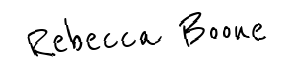 Rebecca Boone